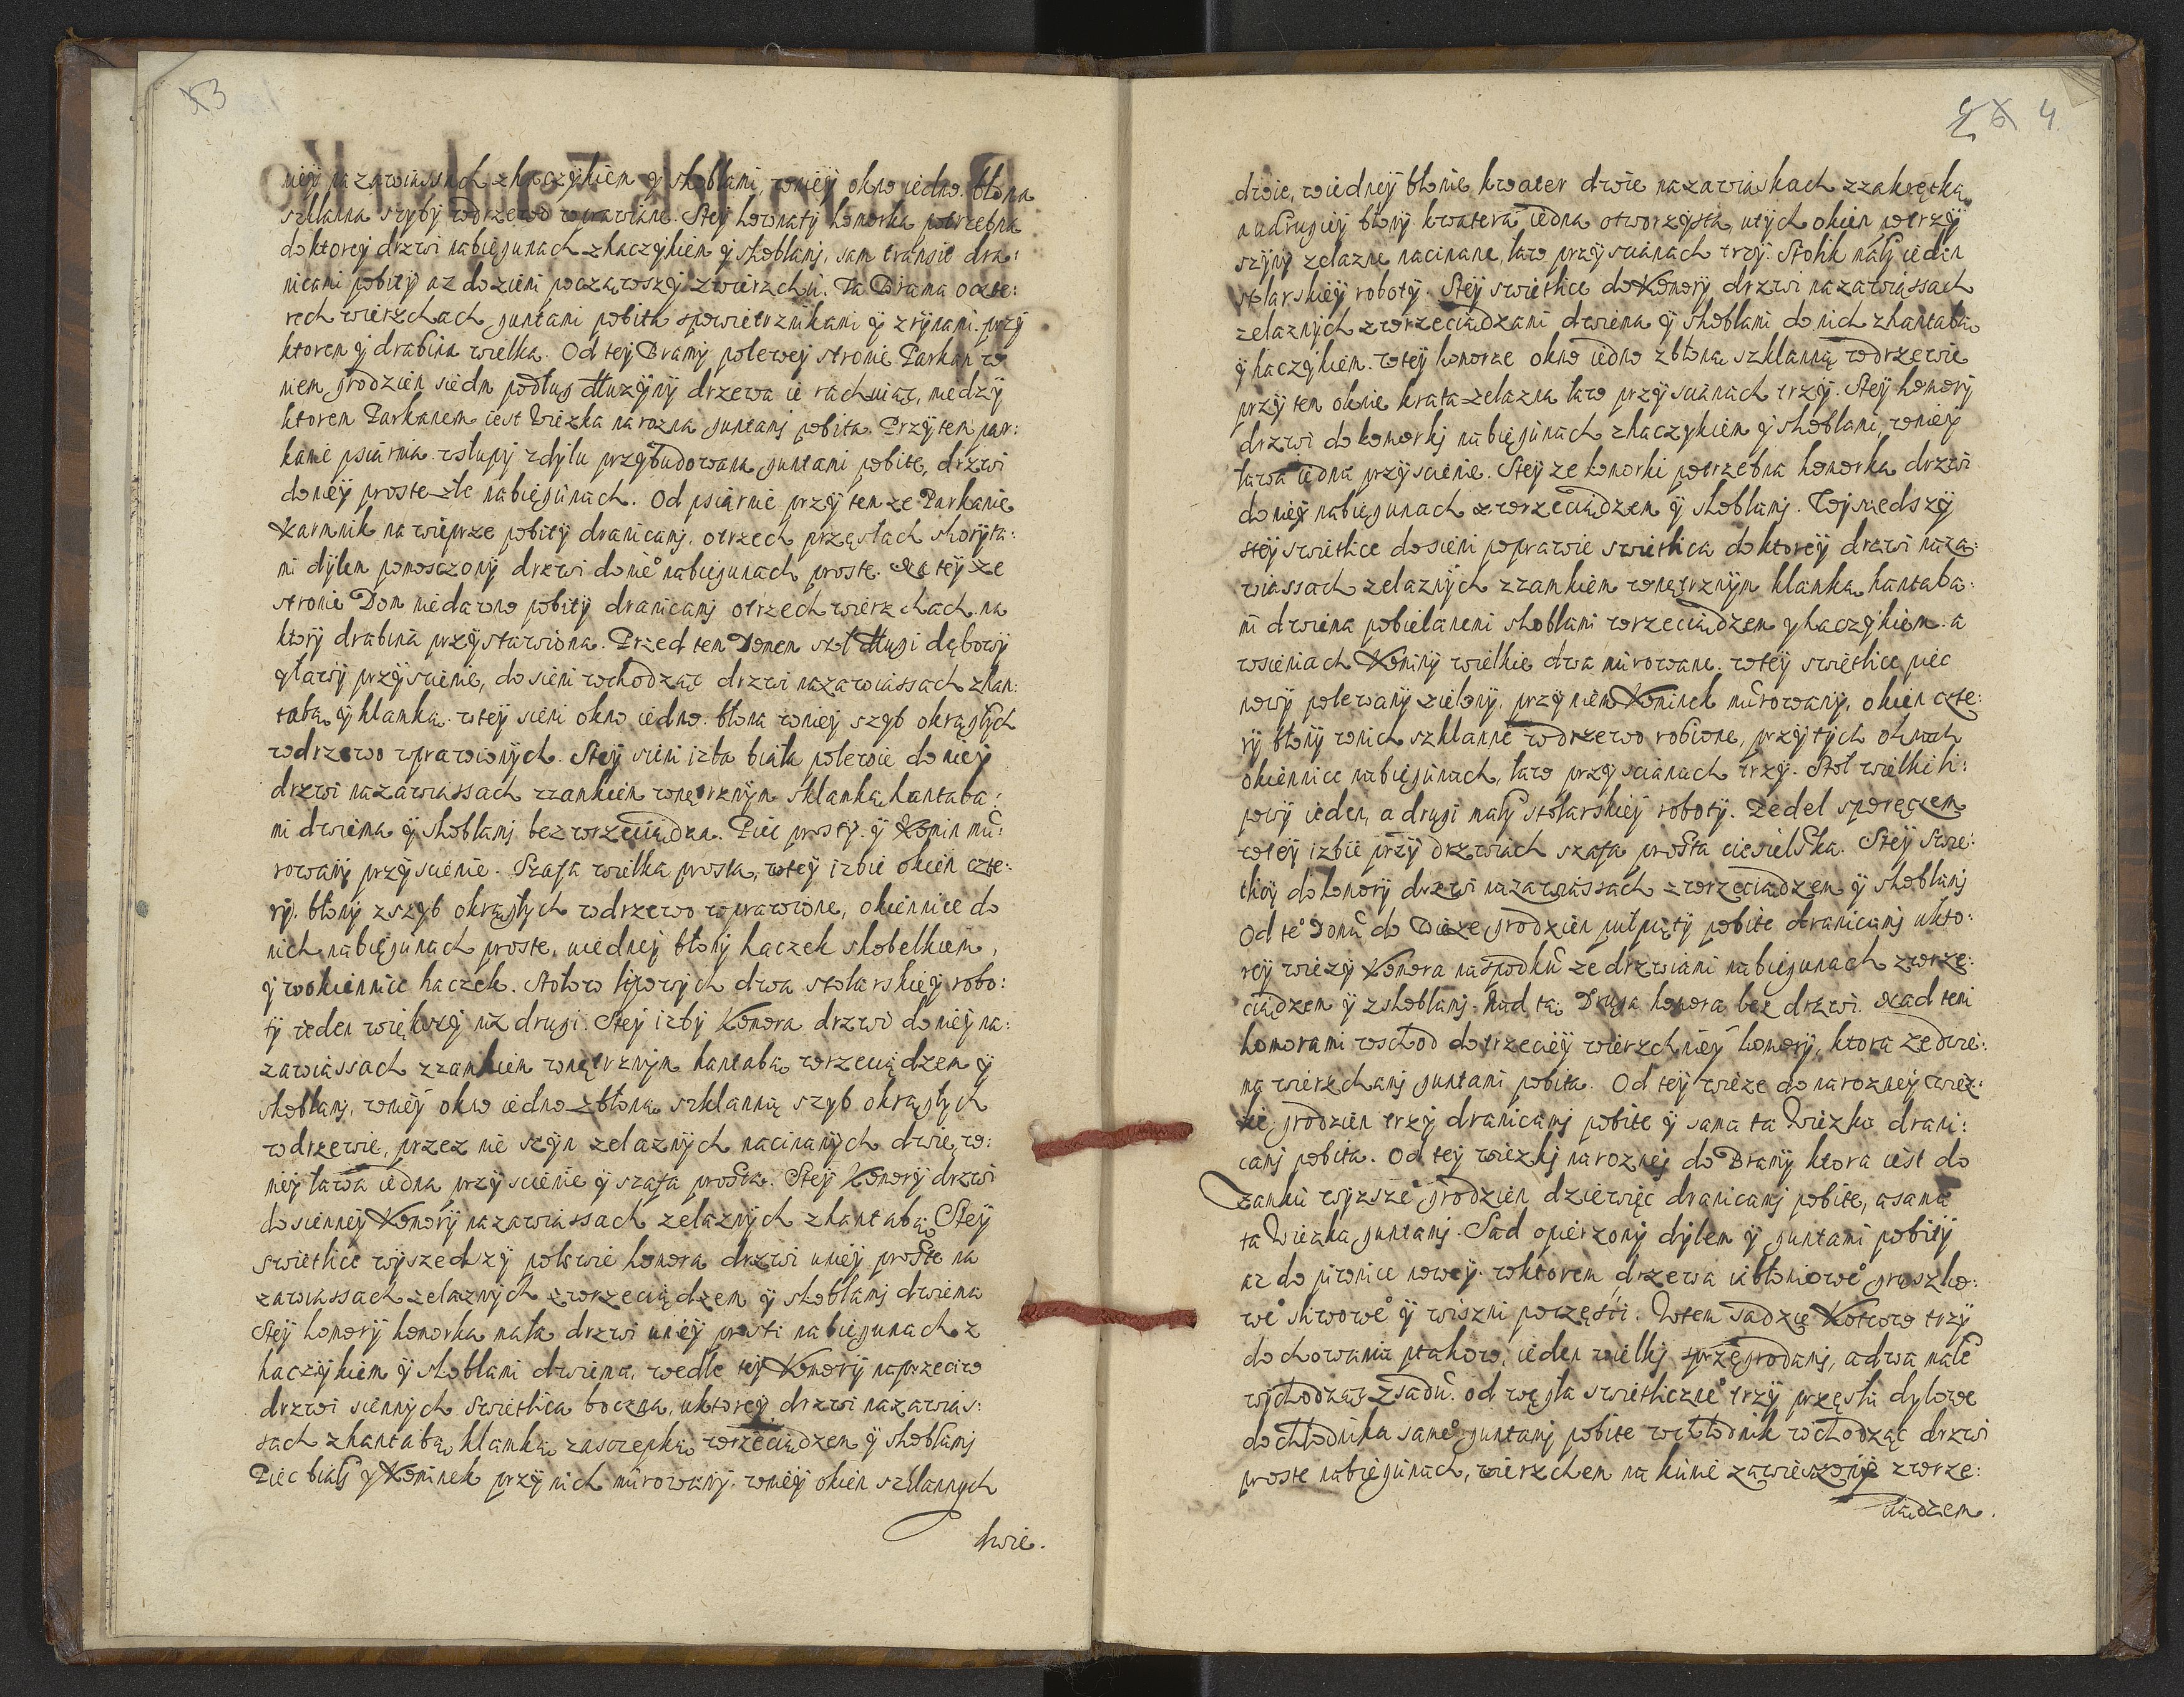 3
niey na zawiasach z haczykiem y skoblami, w niey okno iedno. błona
szklanna szyby w drzewo wprawiane. Stey kownaty komorka potrzebna
do ktorey drzwi na biegunach z haczykiem y skoblami, sam transit dra:
nicami pobity az do zieni począwszy z wierzchu. Ta Brama o czte:
rech wierzchach guntami pobita z powietrznikami y z rynami. przy
ktorem y drabina wielka. Od tey Bramy po lewey stronie Parkan w
niem grodzien siedm podług dłuzyny drzewa ie rachuiąc, miedzy
ktorem Parkanem iest Wiezka narozna guntami pobita. Przy tem par:
kanie psiarnia w słupy z dylu przybudowana guntami pobite, drzwi
do niey proste złe na biegunach. Od psiarnie przy tem ze Parkanie
Karmnik na wieprze pobity dranicami, o trzech przęsłach s koryta:
mi dylem pomosczony drzwi do nie° na biegunach proste. Na tey ze
stronie Dom niedawno pobity dranicami o trzech wierzchach na
ktory drabina przystawiona. Przed tem Domem stoł długi dębowy
y ławy przy scienie, do sieni wchodząc drzwi na zawiassach z han:
tabą y klamką. w tey sieni okno iedno. błona w niey szyb okrągłych
w drzewo wprawionych. Stey sieni izba biała po lewie do niey
drzwi na zawiassach z zamkiem wnętrznym s klamką hantaba:
mi dwiema y skoblami bez wrzeciądza. Piec prosty y Komin mu:
rowany przy scienie. Szafa wielka prosta, w tey izbie okien czte:
ry. błony z szyb okrągłych w drzewo wprawione, okiennice do
nich na biegunach proste, u iedney błony haczek s kobelkiem,
y w okiennice haczek. Stołow lipowych dwa stolarskiey robo:
ty ieden większy niz drugi. Stey izby Komora drzwi do niey na:
zawiassach z zamkiem wnętrznym hantabą wrzeciądzem y
skoblami, w niey okno iedno z błoną szklanną szyb okrągłych
w drzewie, przez nie szyn zelaznych nacinanych dwie, w:
niey ława iedna przy scienie y szafa prosta. Stey Komory drzwi
do sienney Komory na zawiassach zelaznych z hantabą. Stey
swietlice wyszedszy po lewie komora drzwi u niey proste na
zawiassach zelaznych z wrzeciądzem y skoblami dwiema
Stey komory komorka mała drzwi u niey prosti na biegunach z
haczykiem y skoblami dwiema, wedle tey Komory naprzeciw
drzwi siennych Swietlica boczna, u ktorey drzwi na zawias:
sach z hantabą klamką zasczepką wrzeciądzem y skoblami
Piec biały y Kominek przy nich murowany. w niey okien szklannych
dwie.
4
dwie, w iedney błonie kwater dwie na zawiaskach z zakrętką
a u drugiey błony kwatera iedna otworzysta, u tych okien po trzy
szyny zelazne nacinane, ław przy scianach trzy. Stolik mały ieden
stolarskiey roboty. Stey swietlice do Komory drzwi na zawiassach
zelaznych z wrzeciądzami dwiema y skoblami do nich z hantabą
y haczykiem. w tey komorze okno iedno z błoną szklanną w drzewie
przy tem oknie krata zelazna ław przy scianach trzy. Stey komory
drzwi do komorki na biegunach z haczykiem y skoblami, w niey
ława iedna przy scienie. Stey ze komorki potrzebna komorka drzwi
do niey na biegunach z wrzeciądzem y skoblami. Wyszedszy
stey swietlice do sieni po prawie swietlica do ktorey drzwi na za:
wiassach zelaznych z zamkiem wnętrznym klamką hantaba:
mi dwiema pobielanemi skoblami wrzeciądzem y haczykiem. a
w sieniach Kominy wielkie dwa murowane. w tey swietlice piec
nowy polewany zielony, przy niem Kominek murowany, okien czte:
ry błony w nich szklanne w drzewo robione, przy tych oknach
okiennice na biegunach, ław przy scianach trzy. Stoł wielki li:
powy ieden, a drugi mały stolarskiey roboty. Zedel s poręczem
w tey izbie przy drzwiach szafa prosta ciesielska. Stey Swie:
tlicy do komory drzwi na zawiassach z wrzeciadzem y skoblami
Od te° Domu do Wieze grodzien pułpięty pobite dranicami u kto:
rey wiezy Komora na spodku ze drzwiami na biegunach z wrze:
ciądzem y z skoblami. Nad tą Druga komora bez drzwi. Nad temi
komorami wschod do trzeciey wierzchniey komory, ktora ze dwie:
ma wierzchami guntami pobita. Od tey wieze do narozney wiez:
ki grodzien trzy dranicami pobite y sama ta Wiezka drani:
cami pobita. Od tey wiezki narozney do Bramy ktora iest do
Zamku wyzsze° grodzien dziewięc dranicami pobite, a sama
ta Wiezka guntami. Sad opierzony dylem y guntami pobity
az do piwnice nowey. w ktorem drzewa iabłoniowe° gruszko:
we° sliwowe° y wiszni poczęsci. W tem sadzie Kotcow trzy
do chowania ptakow, ieden wielki s przegrodami, a dwa małe
wychodząc z sadu. od węgła swietliczne° trzy przęsła dylowe
do chłodnika same° guntami pobite w chłodnik wchodząc drzwi
proste na biegunach, wierzchem na kunie zawieszonye z wrze:
ciądzem.